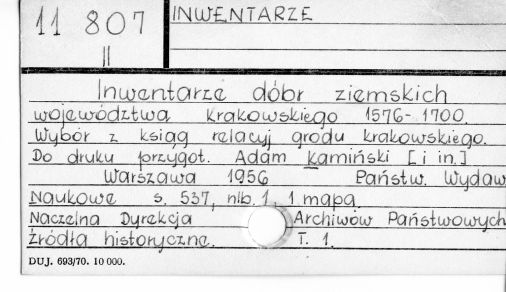 11 807
II
INWENTARZE
Inwentarze dóbr ziemskich
województwa krakowskiego 1576-1700.
Wybór z ksiąg relacyj grodu krakowskiego.
Do druku przygot. Adam Kamiński [i in.]
Warszawa 1956 Państw. Wydaw
Naukowe s. 537, nlb. 1, 1 mapa.
Naczelna Dyrekcja Archiwów Państwowych
źródła historyczne. T. 1.
DUJ. 693/70. 10 000.